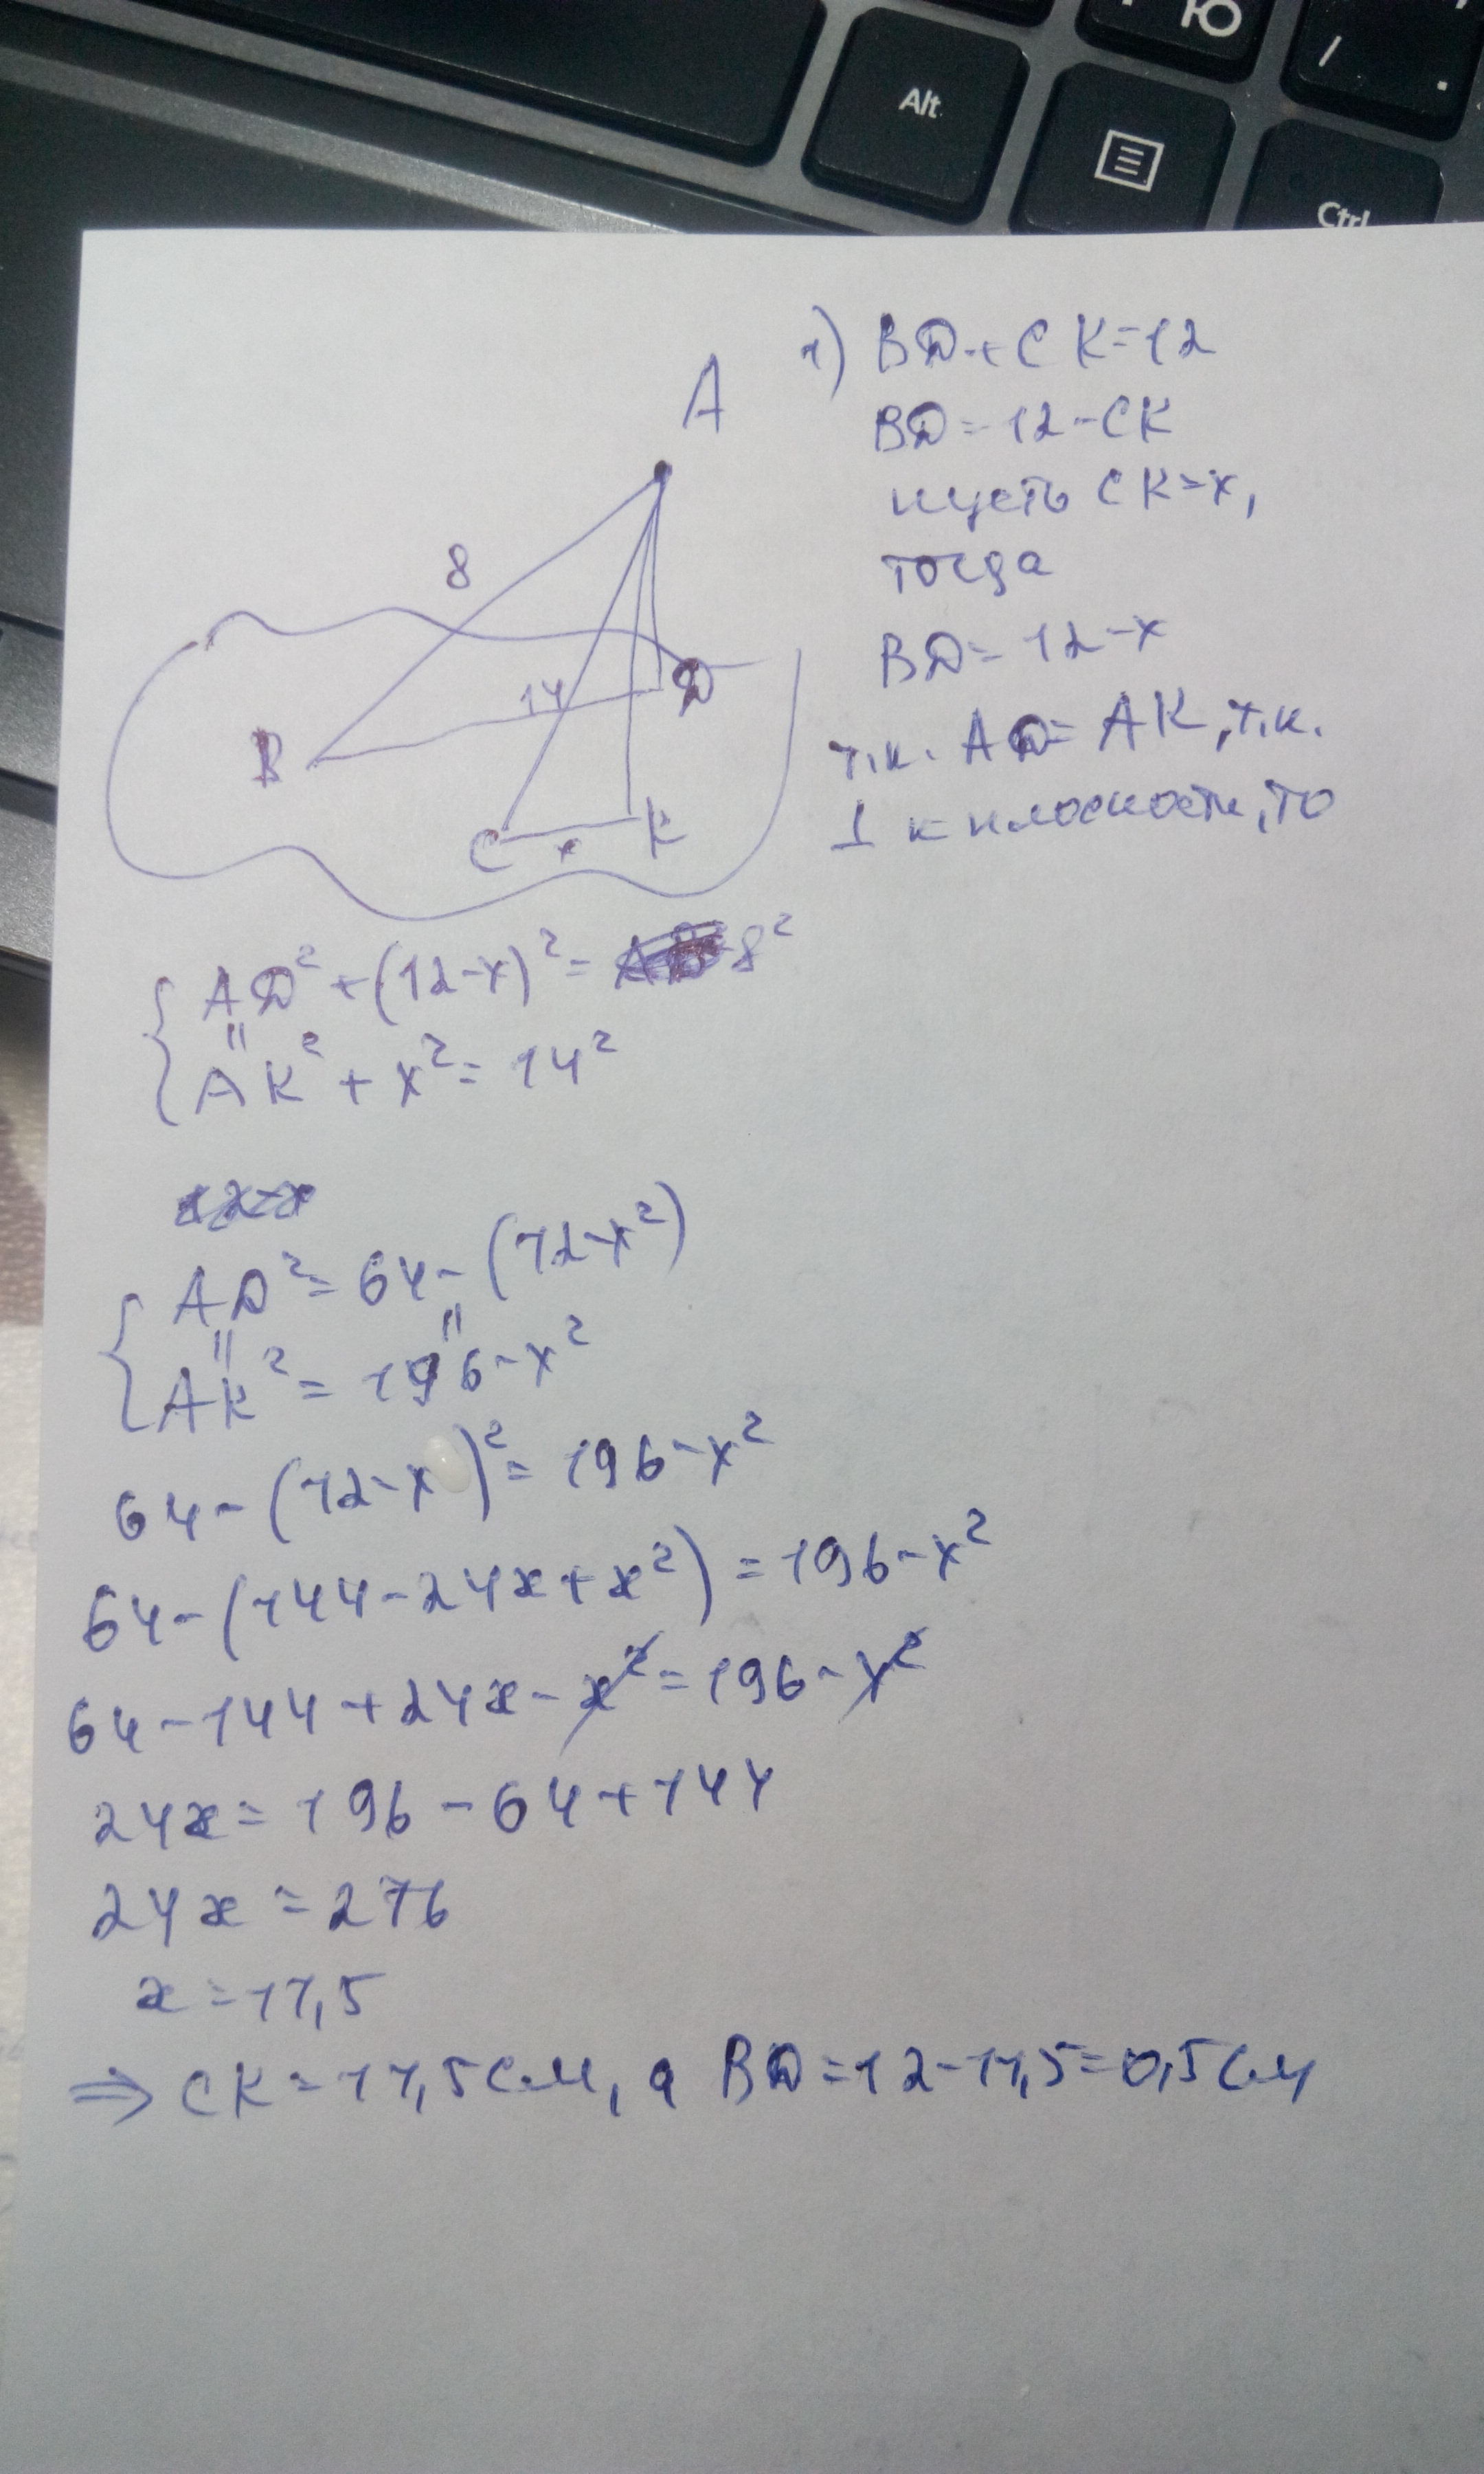 Ю
/
.
Alt
Ctrl
A
8
14
B
D
C
x
K
1) BD+CK=12
BD=12-CK
пусть CK=x,
тогда
BD=12-x
т.к. AD=AK, т.к.
⊥ к плоскости, то
{ AD² + (12-x)² = 8²
"
AK² + x² = 14²
{ AD² = 64-(12-x²)
" "
AK² = 196-x²
64-(12-x)² = 196-x²
64-(144-24x+x²) = 196-x²
64-144+24x-x² = 196-x²
24x = 196-64+144
24x = 276
x = 11,5
⇒ CK = 11,5 см, а BD = 12-11,5 = 0,5 см